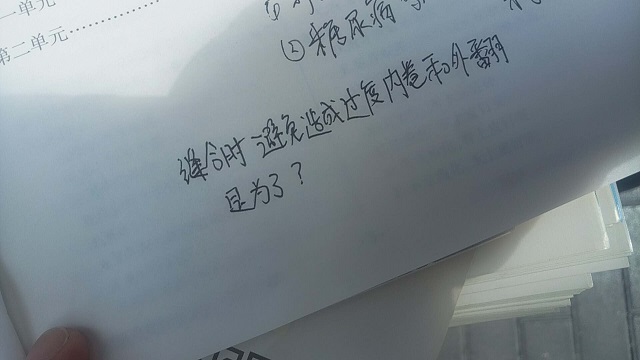 一单元
第二单元
②糖尿病
缝合时避免造成过度内卷和外翻
是为了？